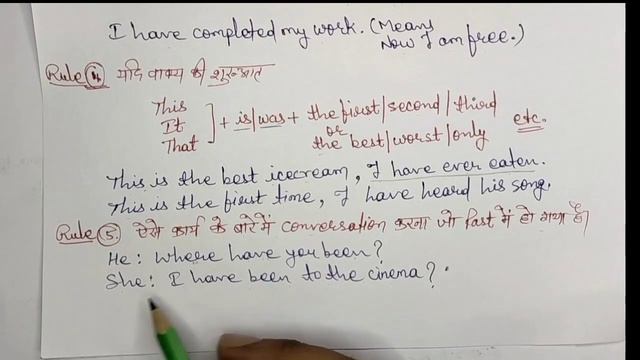 I have completed my work. (Means
Now I am free.)
Rule 4. यदि वाक्य की शुरुआत
This
It
That
+ is/was + the first/second/third
or
the best/worst/only
etc.
This is the best icecream, I have ever eaten.
This is the first time, I have heard his song.
Rule 5. ऐसे कार्य के बारे में conversation करना जो Past में हो गया है।
He: Where have you been?
She: I have been to the cinema?